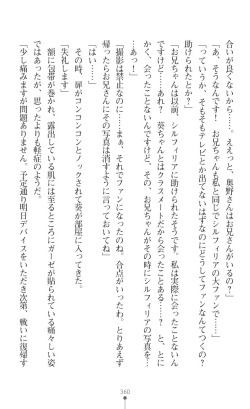 合いが良くないから……。ええっと、奥野さんはお兄さんがいるの？」
「あ、そうなんです！　お兄ちゃんも私と同じでシルフィリアの大ファンで……」
「っていうか、そもそもテレビとか出てないはずなのにどうしてファンなんてことに？　助けられたとか？」
「お兄ちゃんは以前、シルフィリアに助けられたそうです。私は実際に会ったことないんですけど……あれ？　葵ちゃんとはクラスメートだから会ったことある……？　と、ともかく、会ったことないんですけど、そのお兄ちゃんがその時にシルフィリアの写真を……」
「撮影は禁止なのに……まぁ、それでファンになったのね。合点がいったわ。とりあえず帰ったらお兄さんにその写真は消すように言っておいてね」
「はい……」
その時、扉がコンコンコンとノックされて葵が部屋に入ってきた。
「失礼します」
額に包帯が巻かれ、露出している肌には至るところにガーゼが貼られている痛々しい姿ではあったが、思ったよりも軽症のようだ。
「少し痛みますが問題ありません。予定通り明日デバイスをいただき次第、戦いに復帰す
360